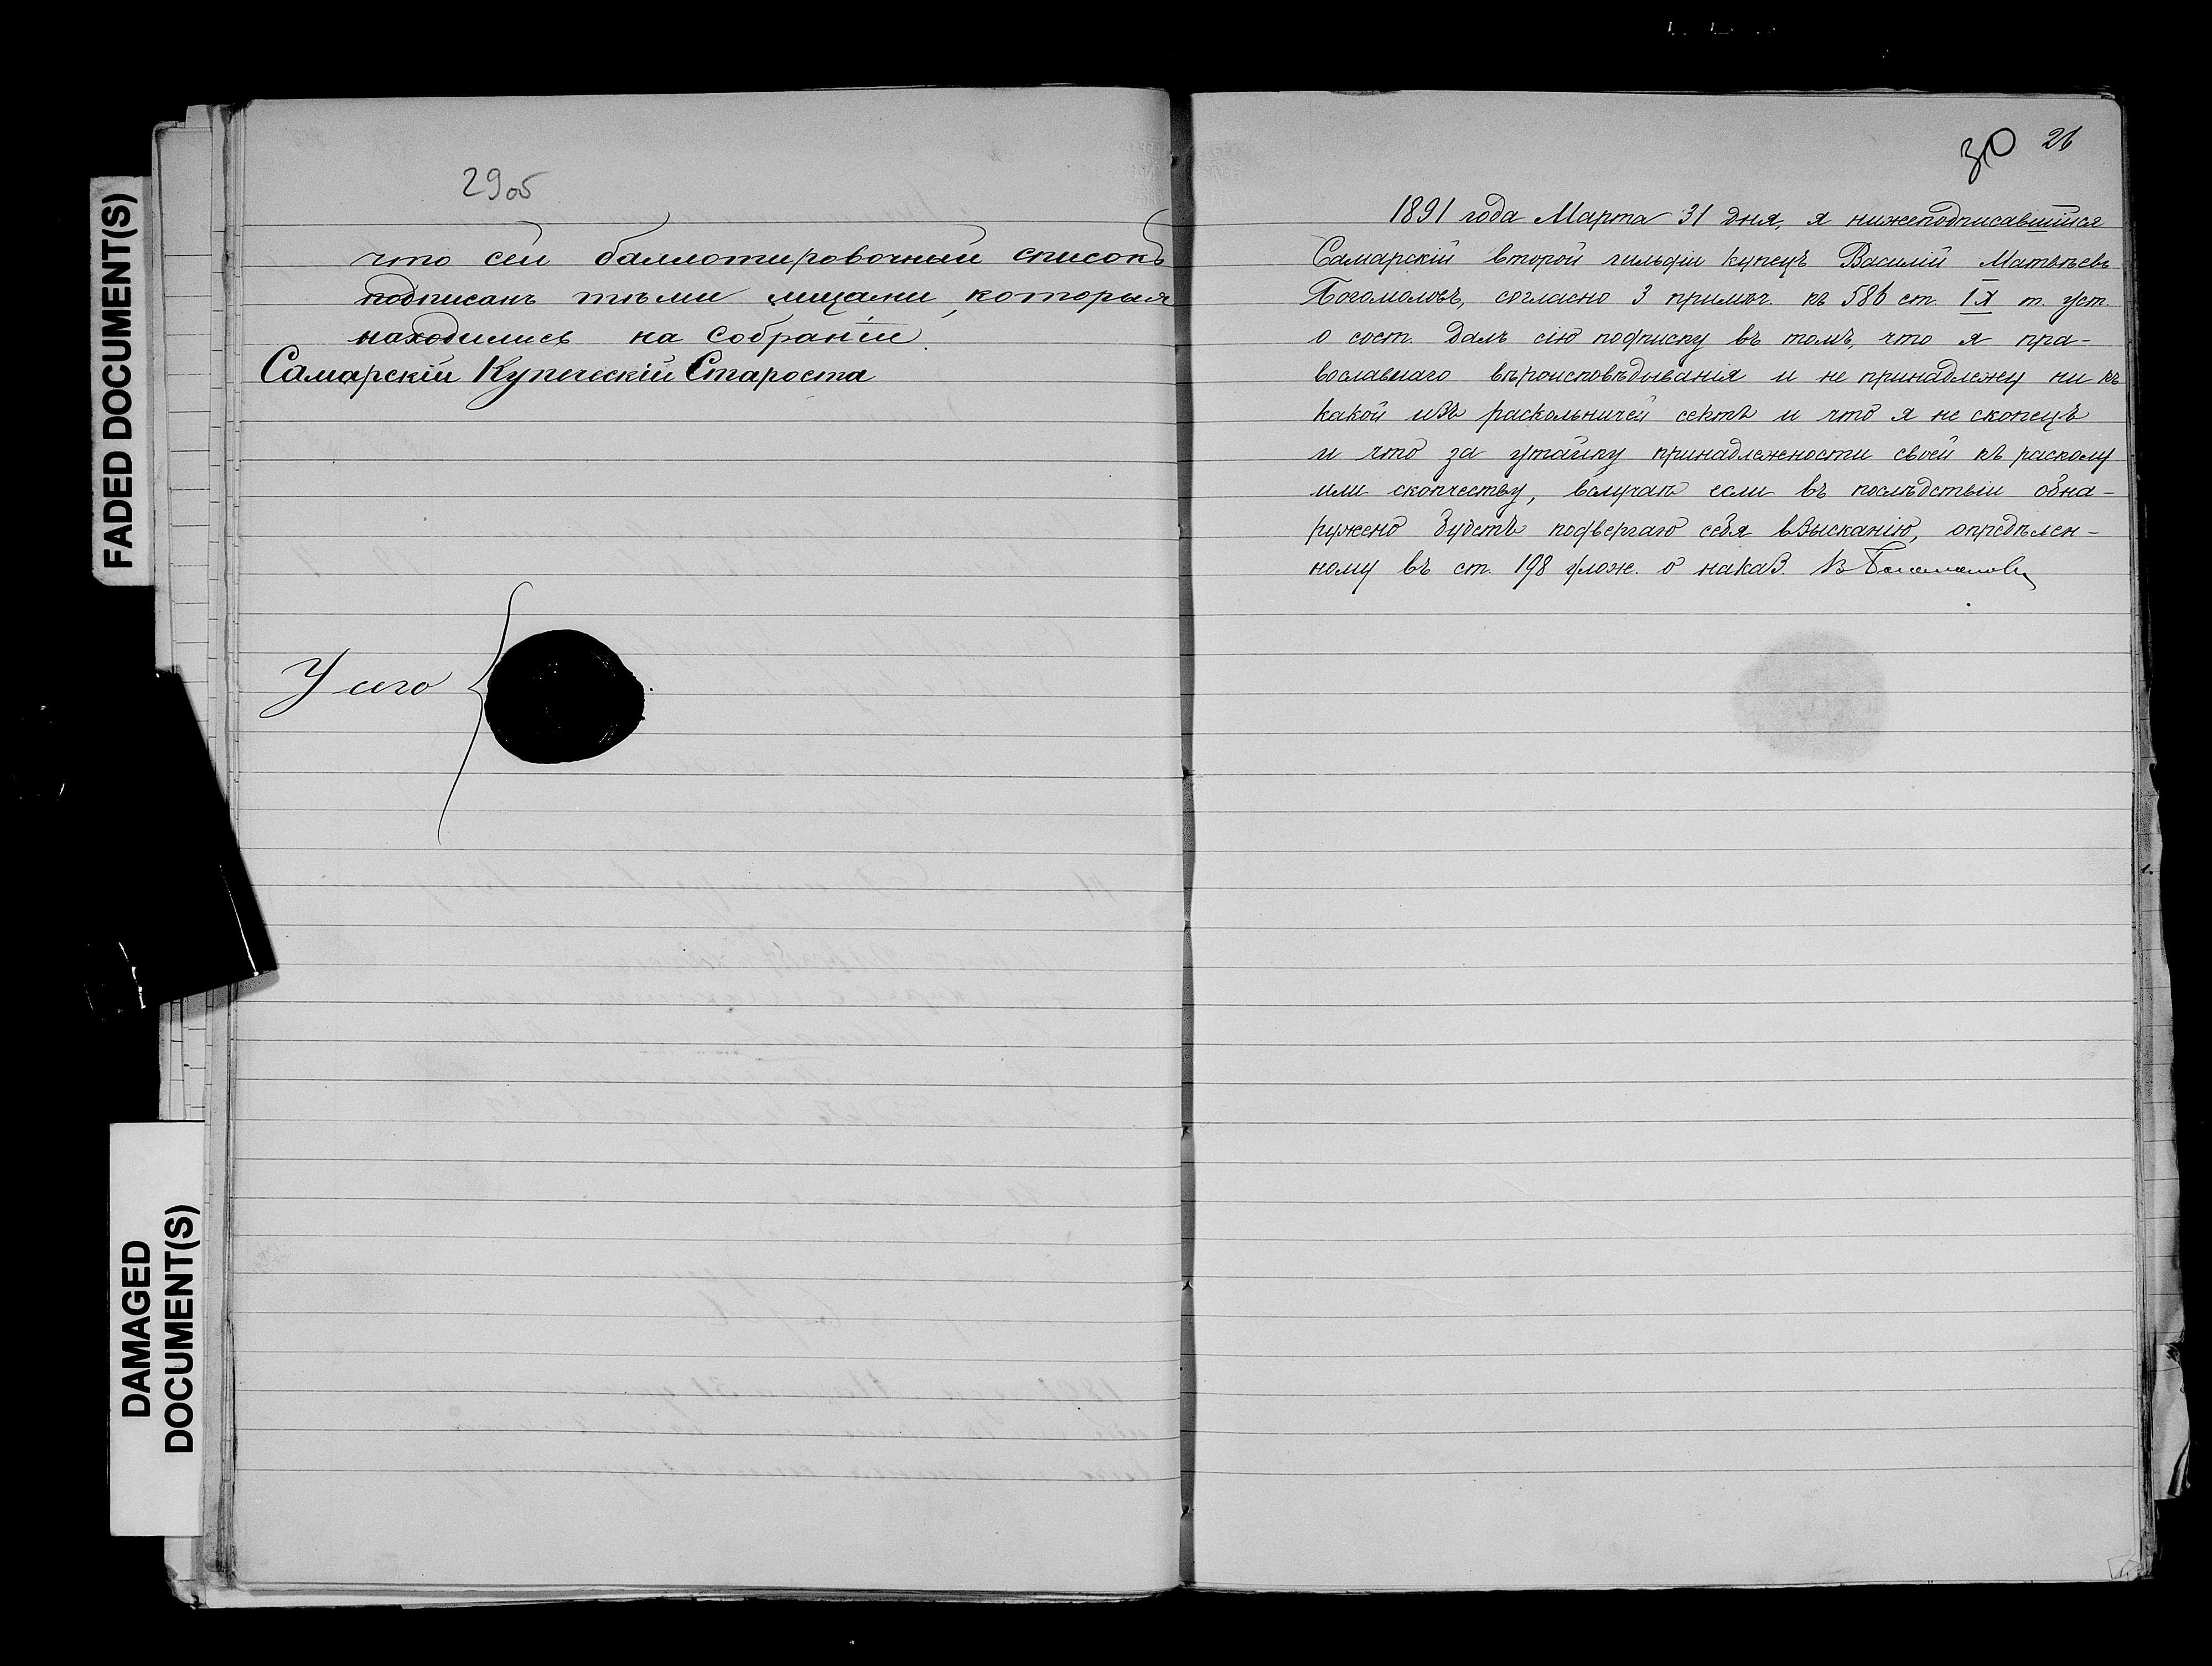 FADED DOCUMENT(S)
DAMAGED
DOCUMENT(S)
29об
что сей баллотировочный списокъ
подписанъ тѣми лицами, которыя
находились на собраніи.
Самарскій Купеческій Староста
У сего
30 26
1891 года Марта 31 дня, я нижеподписавшійся
Самарскій второй гильдіи купецъ Василій Матвѣевъ
Богомоловъ, согласно 3 примѣч. къ 586 ст. IX т. уст.
о сост. далъ сію подписку въ томъ, что я пра-
вославнаго вѣроисповѣдыванія и не принадлежу ни къ
какой изъ раскольничей сектѣ и что я не скопецъ
и что за утайку принадлежности своей къ расколу
или скопчеству, вслучаѣ если въ послѣдствіи обна-
ружено будетъ подвергаю себя взысканію, опредѣлен-
ному въ ст. 198 улож. о наказ. В Богомоловъ